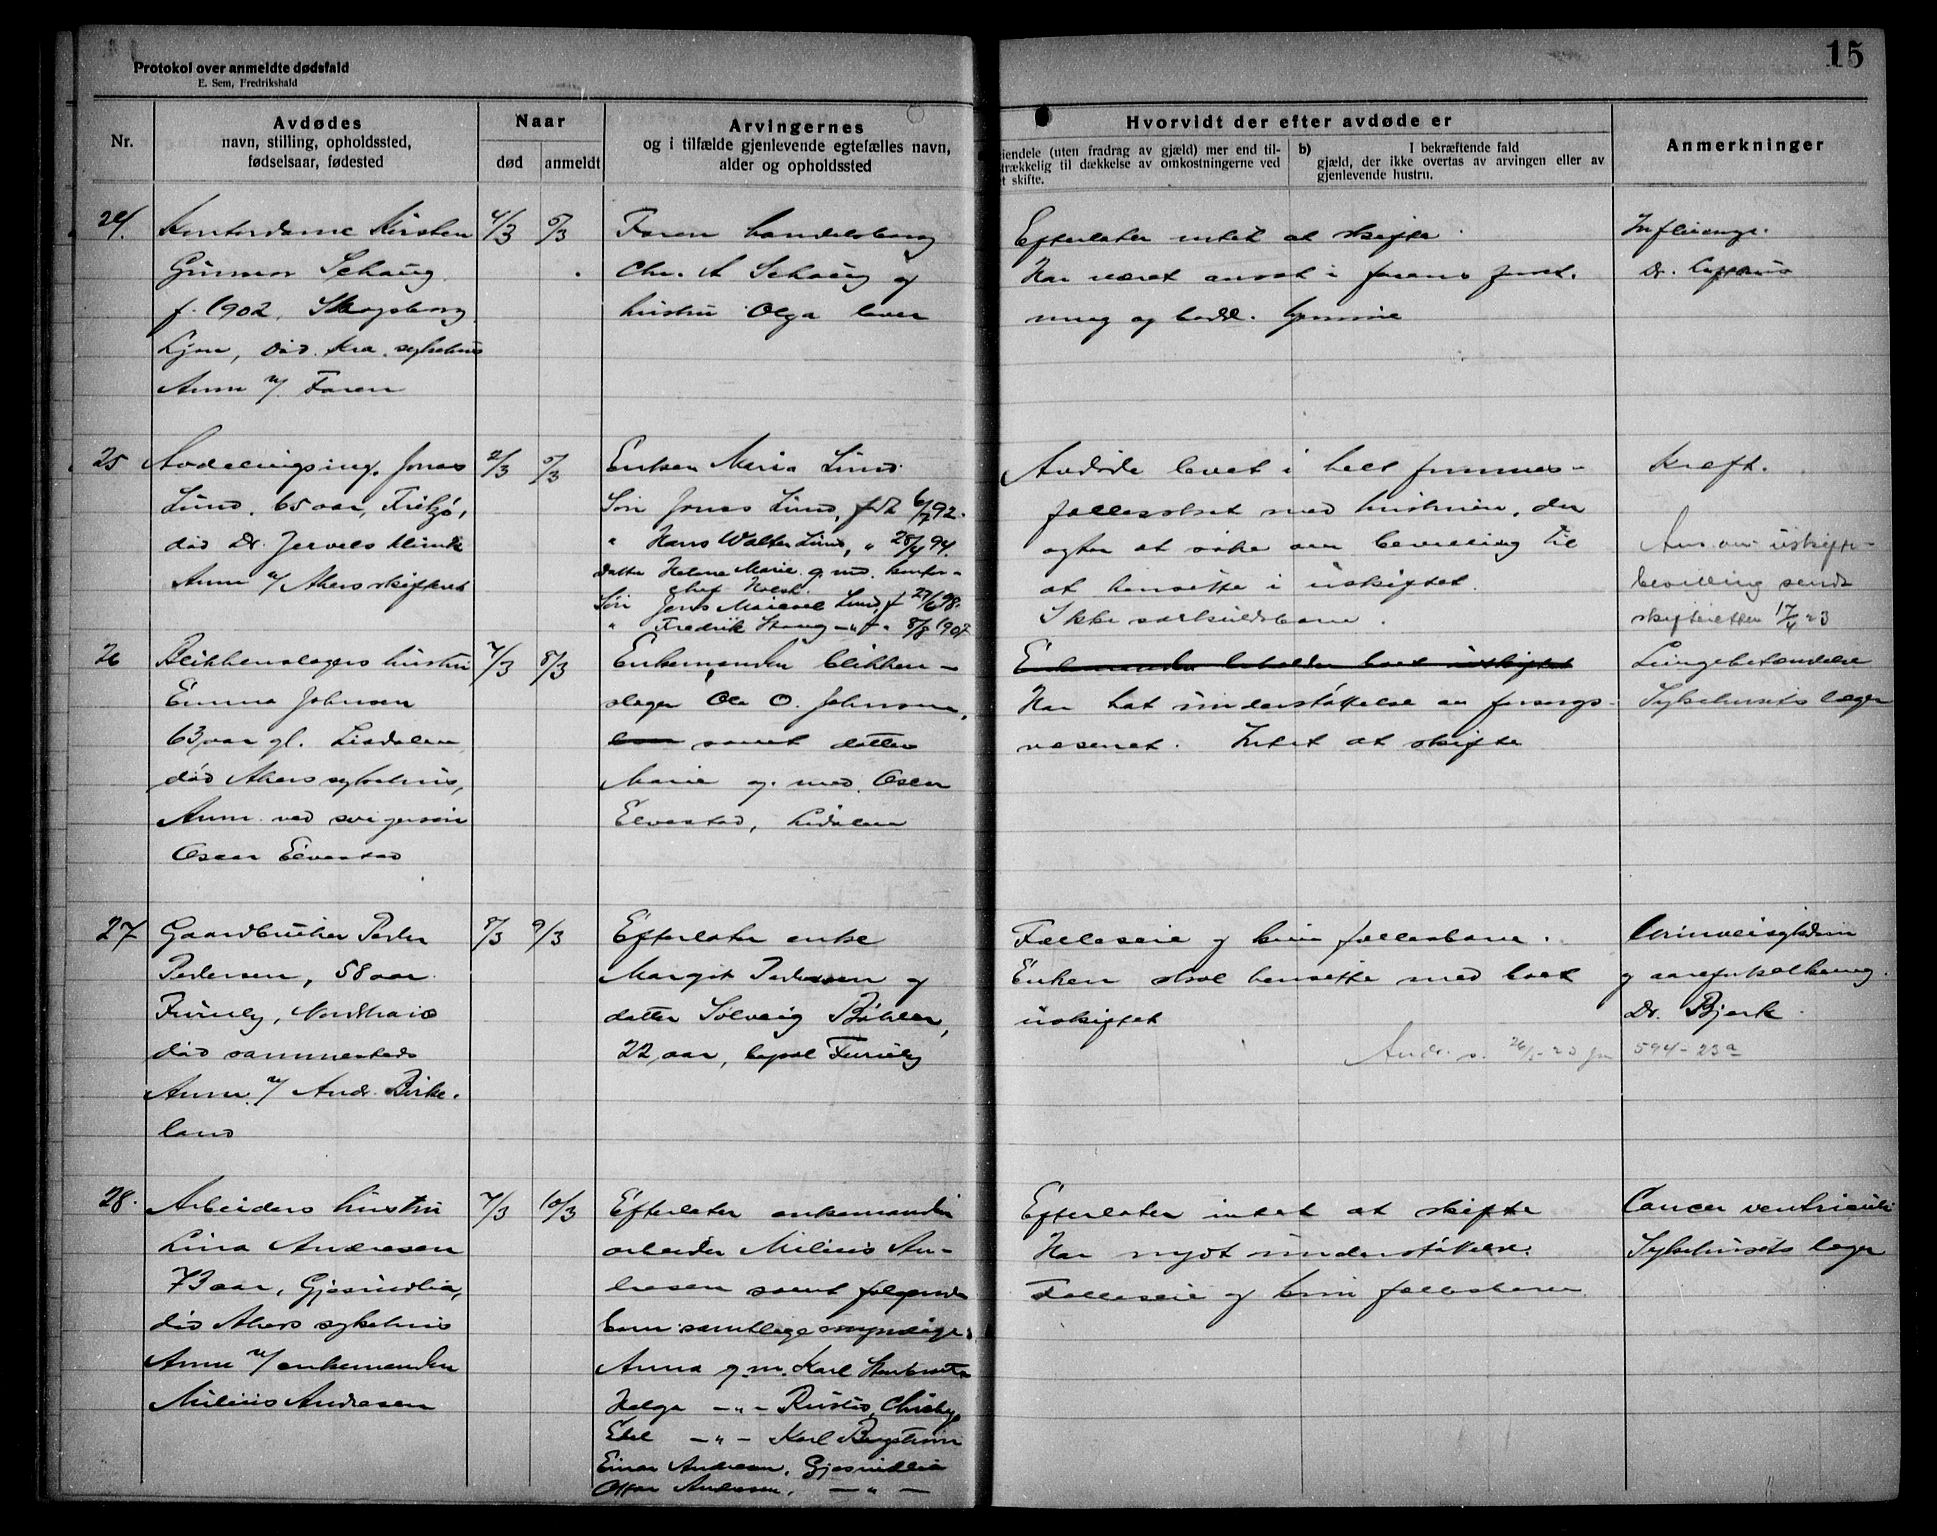 15
Protokol over anmeldte dødsfald
E. Sem, Fredrikshald
Nr.
Avdødes
navn, stilling, opholdssted,
fødselsaar, fødested
Naar
død
anmeldt
Arvingernes
og i tilfælde gjenlevende egtefælles navn,
alder og opholdssted
Hvorvidt der efter avdøde er
iendele (uten fradrag av gjæld) mer end til-
trækkelig til dækkelse av omkostningerne ved
t skifte.
b) I bekræftende fald
gjæld, der ikke overtas av arvingen eller av
gjenlevende hustru.
Anmerkninger
24.
Kontordame Kirsten
Gunnor Schaug
f. 1902, Skogsborg
Ljan, død Kra. sykehus
Anm v/ Faren
4/3
5/3
Faren handelsborg
Chr. A Schaug og
hustru Olga lever
Efterlater intet at skifte.
Har været ansat i farens
og hjemme
Dr.
25
Avdelingsing. Jonas
Lund, 65 aar,
død Dr. Jervels klinik
Anm v/ Akersskifteret
2/3
5/3
Enken Maria Lund
Søn Jonas Lund, født 6/7 92.
" Hans Walter Lund, " 28/4 94.
Datter Helene Marie g. md. kontor-
chef Holst.
Søn Jens Lund, f 27/6 98.
" Fredrik Stang -"- 8/8 1907
Avdøde levet i helt
fællesskap med hustruen, der
agter at søke om bevilling til
at hensitte i uskiftet.
Ikke særkuldsbarn.
Kræft.
Ans om uskifte-
bevilling sendt
skifteretten 17/4 23
26
Blikkenslagers hustru
Emma Johnsen
63 aar gl. Lisdalen
død Akers sykehus,
Anm. ved svigersøn
Oscar Elvestad
7/3
8/3
Enkemanden blikken-
slager Ole O. Johnsen,
samt datter
Marie g. med Oscar
Elvestad, Lisdalen
Enkemanden beholder boet uskiftet
Har hat understøttelse av forsorgs-
væsenet. Intet at skifte
Lungebetændelse
Sykehusets læger
27
Gaardbruker Peder
Pedersen, 58 aar.
Furuly, Nordstrand
død sammesteds
Anm. v/ Andr. Birke-
land
8/3
9/3
Efterlater enke
Margit Pedersen og
datter Solveig Bøhler,
22 aar, bopæl Furuly
Fælleseie og kun fællesbarn.
Enken skal hensitte med boet
uskiftet
594-23a
Urinveisykdom
og aareforkalkning.
Dr. Bjerk.
28.
Arbeiders hustru
Lina Andresen
73 aar, Gjøsundlia,
død Akers sykehus
Anm v/ enkemanden
Milius Andresen
7/3
10/3
Efterlater enkemanden
arbeider Milius An-
dresen samt følgende
barn samtlige myndige:
Anna g. m. Karl
Helga -"-
-"- Karl Bergstrøm
Einar Andresen, Gjøsundlia
Andresen, -"-
Efterlater intet at skifte
Har nydt understøttelse.
Fælleseie og kun fællesbarn
Cancer ventriculi
Sykehusets læger